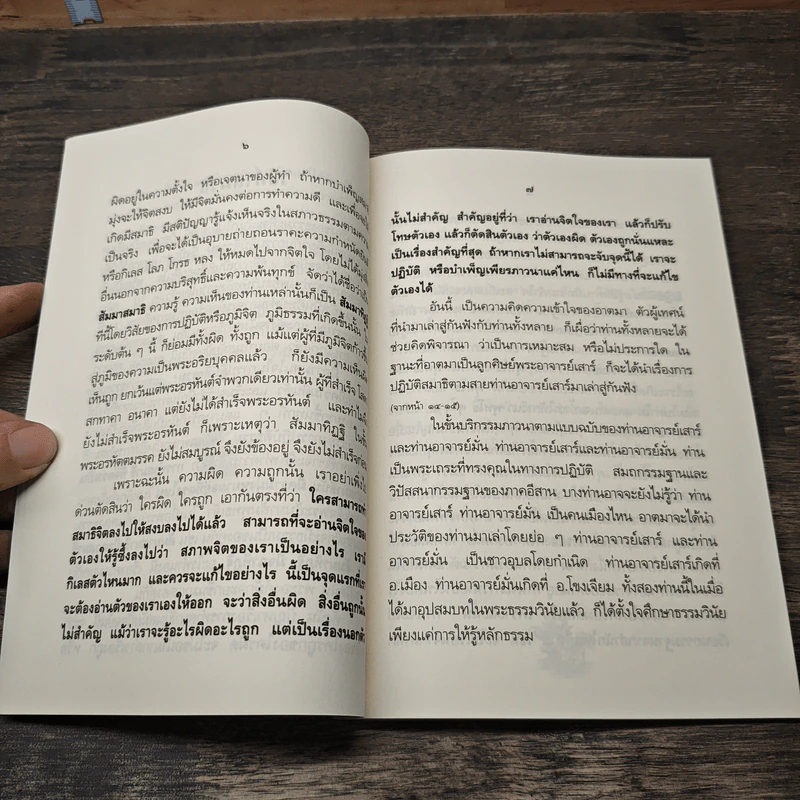 ๖
ผิดอยู่ในความตั้งใจ หรือเจตนาของผู้ทำ ถ้าหากบำเพ็ญ
มุ่งจะให้จิตสงบ ให้มีจิตมั่นคงต่อการทำความดี และเพื่อ
เกิดมีสมาธิ มีสติปัญญารู้แจ้งเห็นจริงในสภาวธรรมตามความ
เป็นจริง เพื่อจะได้เป็นอุบายถ่ายถอนราคะความกำหนัด
หรือกิเลส โลภ โกรธ หลง ให้หมดไปจากจิตใจ โดยไม่ได้
อื่นนอกจากความบริสุทธิ์และความพ้นทุกข์ จัดว่าได้ชื่อว่า
สัมมาสมาธิ ความรู้ ความเห็นของท่านเหล่านั้นก็เป็น สัมมาทิฏฐิ
ทีนี้โดยวิสัยของการปฏิบัติหรือภูมิจิต ภูมิธรรมที่เกิดขึ้นนั้น
ระดับต้น ๆ นี้ ก็ย่อมมีทั้งผิด ทั้งถูก แม้แต่ผู้ที่มีภูมิจิตก้าว
สู่ภูมิของความเป็นพระอริยบุคคลแล้ว ก็ยังมีความเห็น
เห็นถูก ยกเว้นแต่พระอรหันต์จำพวกเดียวเท่านั้น ผู้ที่สำเร็จ
สกทาคา อนาคา แต่ยังไม่ได้สำเร็จพระอรหันต์ และทำไม
ยังไม่สำเร็จพระอรหันต์ ก็เพราะเหตุว่า สัมมาทิฏฐิ
พระอรหัตตมรรค ยังไม่สมบูรณ์ จึงยังข้องอยู่ จึงยังไม่สำเร็จ
เพราะฉะนั้น ความผิด ความถูกนั้น เราอย่าเพิ่ง
ด่วนตัดสินว่า ใครผิด ใครถูก เอากันตรงที่ว่า ใครสามารถ
สมาธิจิตลงไปให้สงบลงไปได้แล้ว สามารถที่จะอ่านจิตใจของ
ตัวเองให้รู้ซึ้งลงไปว่า สภาพจิตของเราเป็นอย่างไร เรามี
กิเลสตัวไหนมาก และควรจะแก้ไขอย่างไร นี้เป็นจุดแรกที่
จะต้องอ่านตัวของเราเองให้ออก จะว่าสิ่งอื่นผิด สิ่งอื่นถูกนั้น
ไม่สำคัญ แม้ว่าเราจะรู้อะไรผิดอะไรถูก แต่เป็นเรื่องนอกตัว
๗
นั้นไม่สำคัญ สำคัญอยู่ที่ว่า เราอ่านจิตใจของเรา แล้วก็ปรับ
โทษตัวเอง แล้วก็ตัดสินตัวเอง ว่าตัวเองผิด ตัวเองถูกนั่นแหละ
เป็นเรื่องสำคัญที่สุด ถ้าหากเราไม่สามารถจะจับจุดนี้ได้ เราจะ
ปฏิบัติ หรือบำเพ็ญเพียรภาวนาแค่ไหน ก็ไม่มีทางที่จะแก้ไข
ตัวเองได้
อันนี้ เป็นความคิดความเข้าใจของอาตมา ตัวผู้เทศน์
ที่นำมาเล่าสู่กันฟังกับท่านทั้งหลาย ก็เผื่อว่าท่านทั้งหลายจะได้
ช่วยคิดพิจารณา ว่าเป็นการเหมาะสม หรือไม่ประการใด ใน
ฐานะที่อาตมาเป็นลูกศิษย์พระอาจารย์เสาร์ ก็จะได้นำเรื่องการ
ปฏิบัติสมาธิตามสายท่านอาจารย์เสาร์มาเล่าสู่กันฟัง
(จากหน้า ๑๔-๑๕)
ในชั้นบริกรรมภาวนาตามแบบฉบับของท่านอาจารย์เสาร์
และท่านอาจารย์มั่น ท่านอาจารย์เสาร์และท่านอาจารย์มั่น ท่าน
เป็นพระเถระที่ทรงคุณในทางการปฏิบัติ สมถกรรมฐานและ
วิปัสสนากรรมฐานของภาคอีสาน บางท่านอาจจะยังไม่รู้ว่า ท่าน
อาจารย์เสาร์ ท่านอาจารย์มั่น เป็นคนเมืองไหน อาตมาจะได้นำ
ประวัติของท่านมาเล่าโดยย่อ ๆ ท่านอาจารย์เสาร์ และท่าน
อาจารย์มั่น เป็นชาวอุบลโดยกำเนิด ท่านอาจารย์เสาร์เกิดที่
อ.เมือง ท่านอาจารย์มั่นเกิดที่ อ.โขงเจียม ทั้งสองท่านนี้ในเมื่อ
ได้มาอุปสมบทในพระธรรมวินัยแล้ว ก็ได้ตั้งใจศึกษาธรรมวินัย
เพียงแค่การให้รู้หลักธรรม